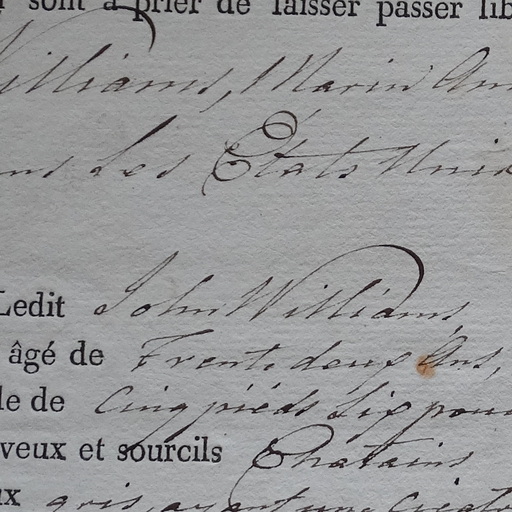 sont à prier de laisser passer lib
Williams, Marin Am
ns Les États Unis
Ledit John Williams
âgé de Trente deux Ans,
le de Cinq pieds Six pouc
veux et sourcils Chatains
ux gris, ayant une Cicatr